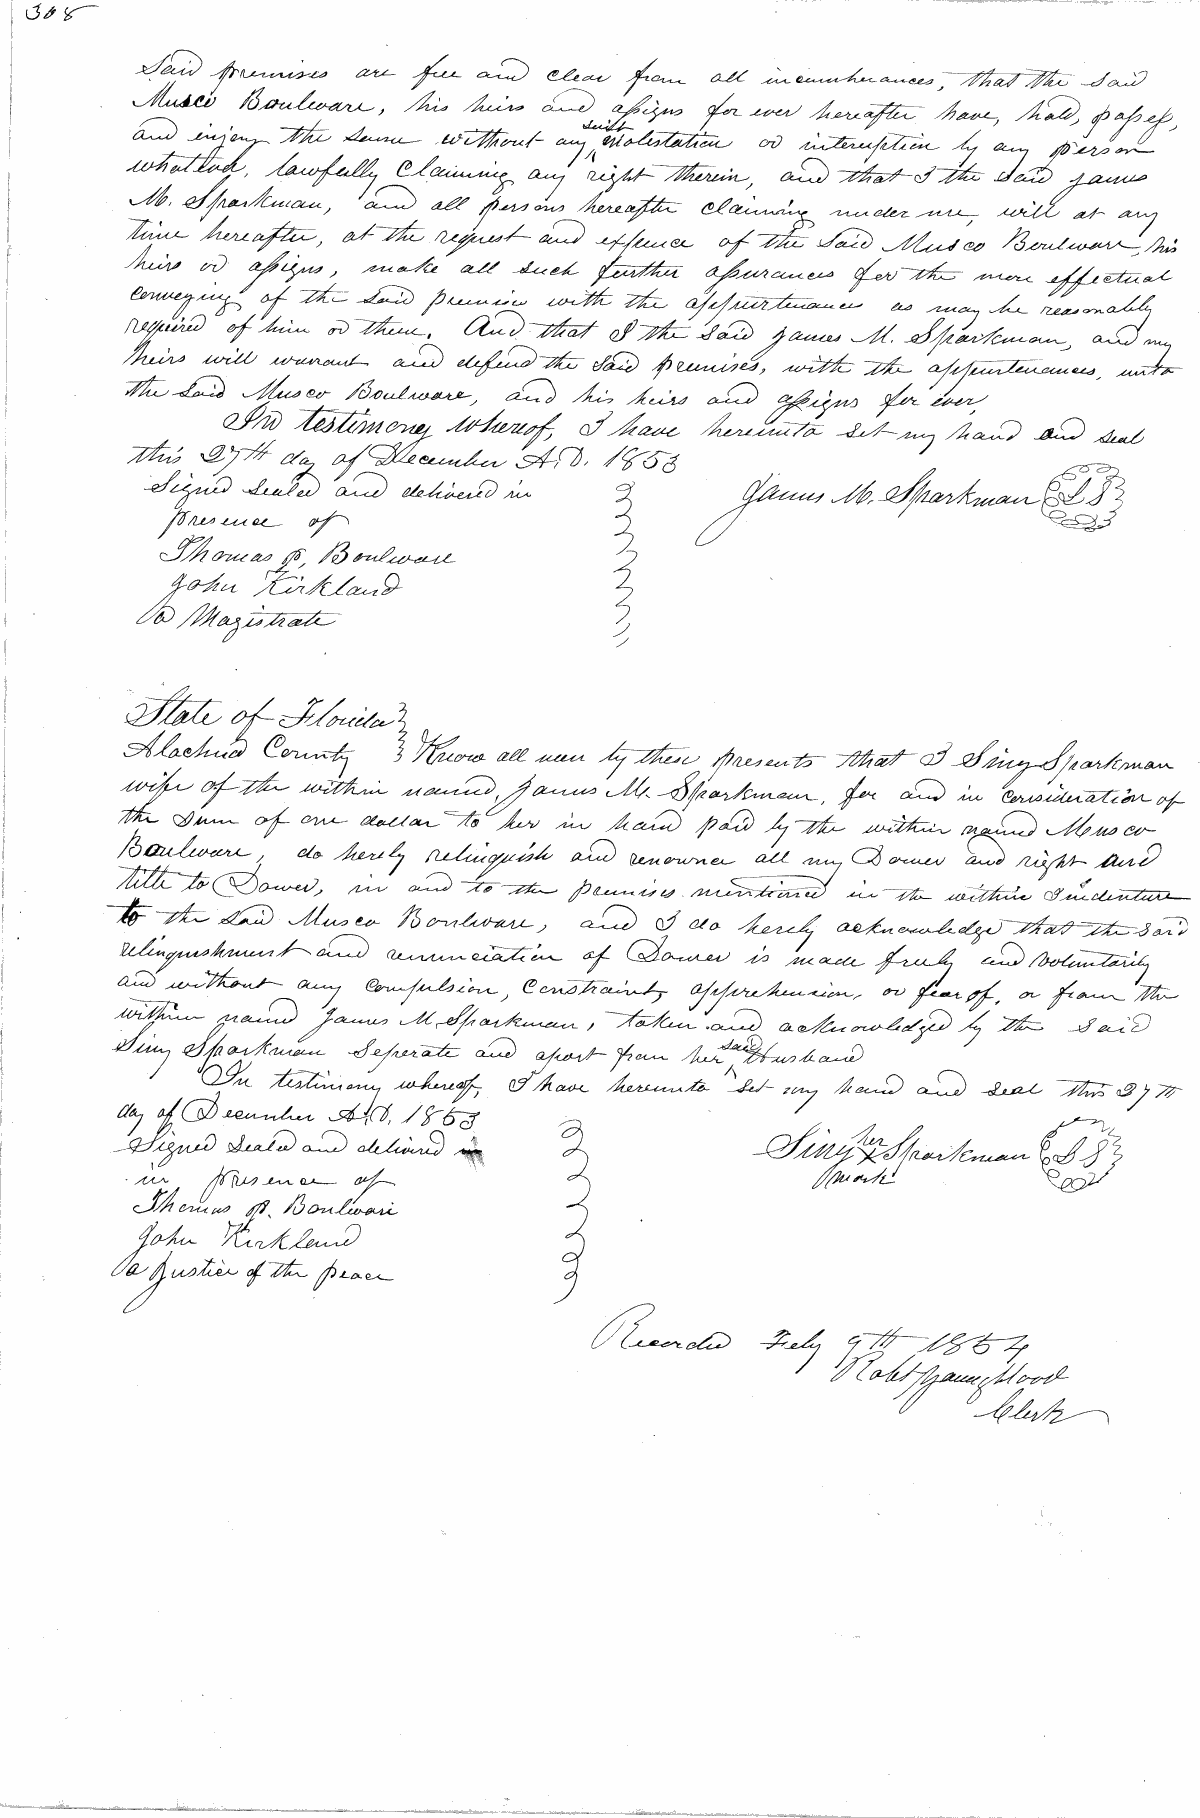 308
Said premises are free and clear from all incumberances, that the said
Musco Boulware, his heirs and assigns for ever hereafter have, hold, possess,
and enjoy the same without any suit molestation or interuption by any person
whatever, lawfully Claiming any right therein, and that I the said James
M. Sparkman, and all persons hereafter claiming under me, will at any
time hereafter, at the request and expence of the Said Musco Boulware, his
heirs or assigns, make all such further assurances for the more effectual
conveying of the said premise with the appurtenance as may be reasonably
required of him or them. And that I the said James M. Sparkman, and my
heirs will warrant and defend the Said premises, with the appurtenances, unto
the said Musco Boulware, and his heirs and assigns for ever,
In testimony Whereof, I have hereunto set my hand and seal
this 27th day of December A.D. 1853
Signed Sealed and delivered in
presence of
James M. Sparkman L S
Thomas P. Boulware
John Kirkland
a Magistrate
State of Florida
Alachua County Know all men by these presents that I Siny Sparkman
wife of the within named, James M. Sparkman, for and in consideration of
the Sum of one dollar to her in hand paid by the within named Musco
Boulware, do hereby relinquish and renounce all my Dower and right and
title to Dower, in and to the premises mentioned in the within Indenture
to the said Musco Boulware, and I do hereby acknowledge that the said
relinquishment and renunciation of Dower is made freely and voluntarily
and without any compulsion, Constraint, apprehension, or fear of, or from the
within named James M. Sparkman, taken and acknowledged by the said
Siny Sparkman Seperate and apart from her said Husband
In testimony whereof, I have hereunto set my hand and seal this 27th
day of December A.D. 1853
Signed Sealed and delivered
in presence of
Siny her X mark Sparkman L S
Thomas P. Boulware
John Kirkland
a Justice of the peace
Recorded Feby 9th 1854
Robt Youngblood
Clerk